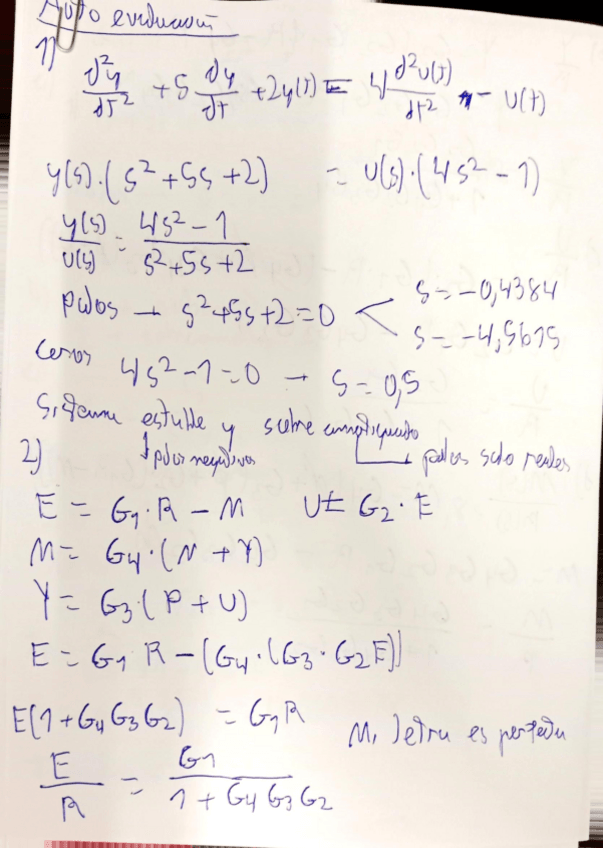 Auto evaluación
1)
d²y/dt² + 5 dy/dt + 2y(t) = 4 d²u(t)/dt² - u(t)
y(s)·(s² + 5s + 2) = u(s)·(4s² - 1)
y(s)/u(s) = 4s² - 1 / s² + 5s + 2
polos → s² + 5s + 2 = 0 < s = -0,4384
s = -4,5615
ceros 4s² - 1 = 0 → s = 0,5
Sistema estable y sobre amortiguado
2) ↓ polos negativos → polos solo reales
E = G1·R - M U = G2·E
M = G4·(N + Y)
Y = G3(P + U)
E = G1 R - (G4·(G3·G2E))
E(1 + G4G3G2) = G1R
Mi letra es perfecta
E/R = G1 / 1 + G4G3G2